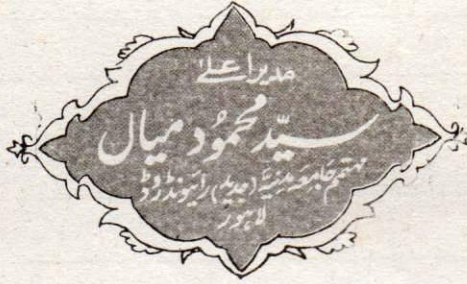 مدیر اعلےٰ
سیّد محمُود میاں
مہتمم جامعہ مدنیَّہ (جدید) رائیونڈ روڈ
لاہور